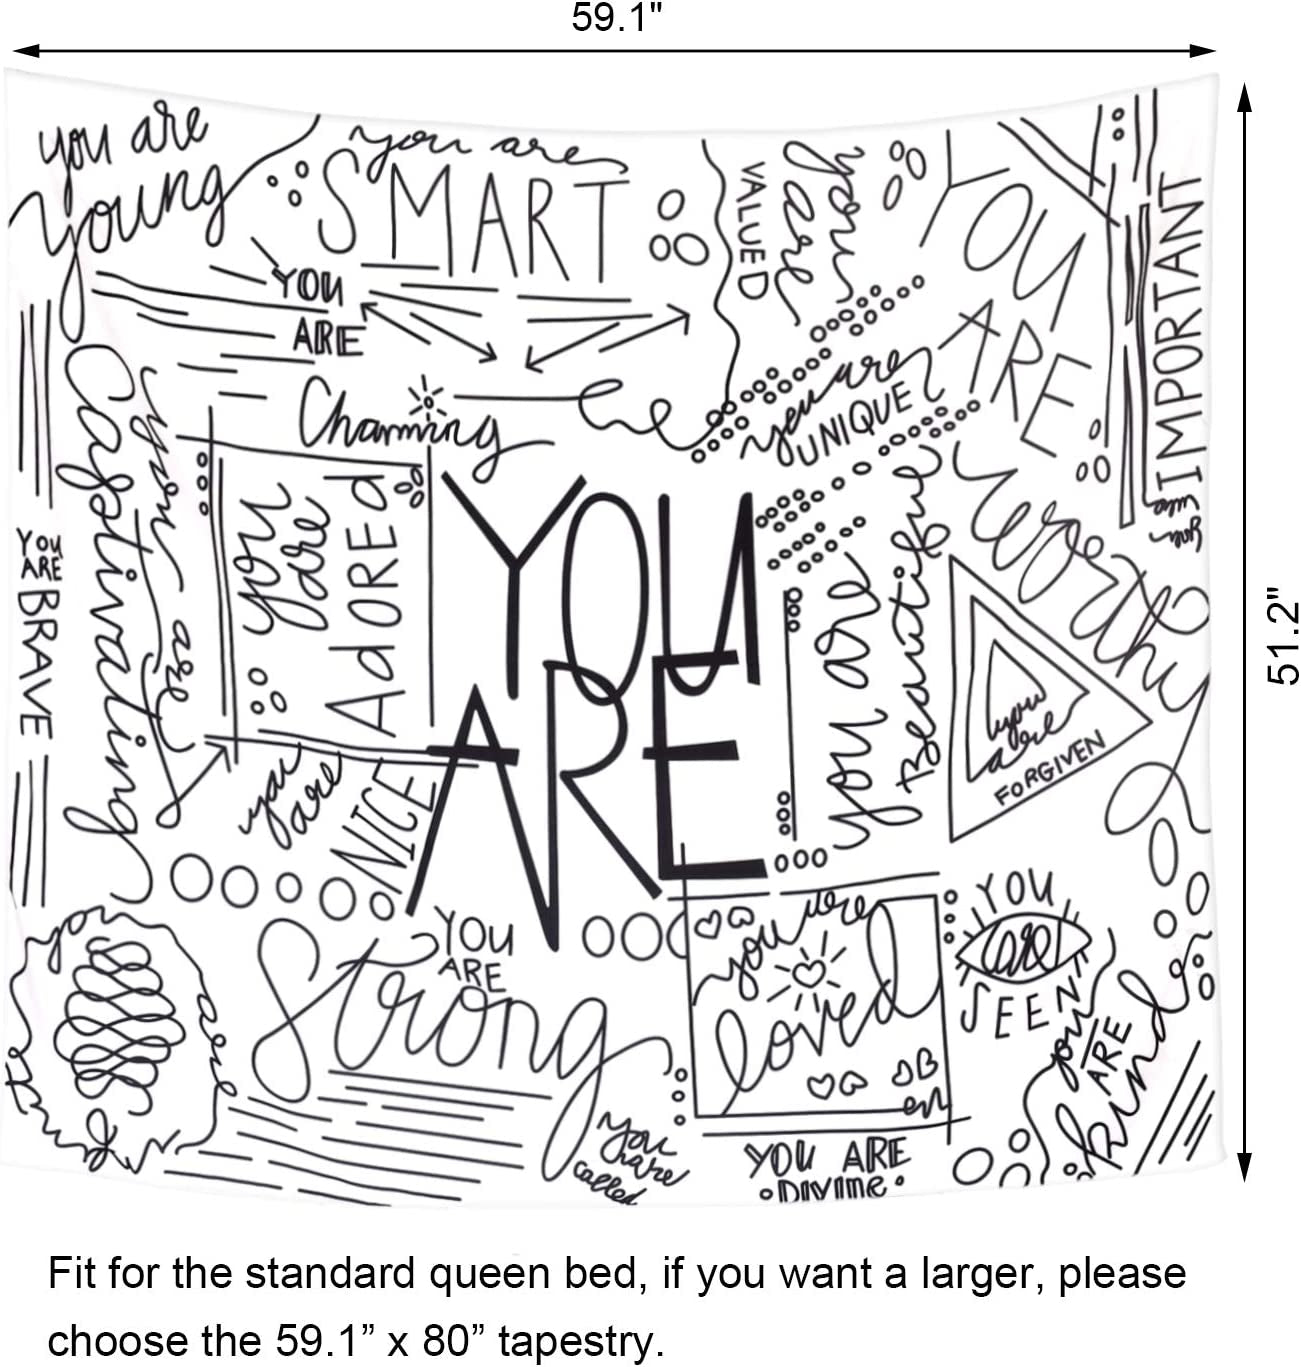 59.1"
you are
young
you are
SMART
VALUED
you
are
YOU
ARE
IMPORTANT
you are
YOU
ARE
Charming
you are
UNIQUE
you are
Captivating
you
are
AdORED
YOU
ARE
BRAVE
YOU
ARE
you are
Beautiful
worthy
you
are
FORGIVEN
51.2"
you
are
NICE
YOU
ARE
Strong
you are
loved
YOU
are
SEEN
you
ARE
kind
you
are
you
are
called
YOU ARE
DIVINE
Fit for the standard queen bed, if you want a larger, please
choose the 59.1” x 80” tapestry.